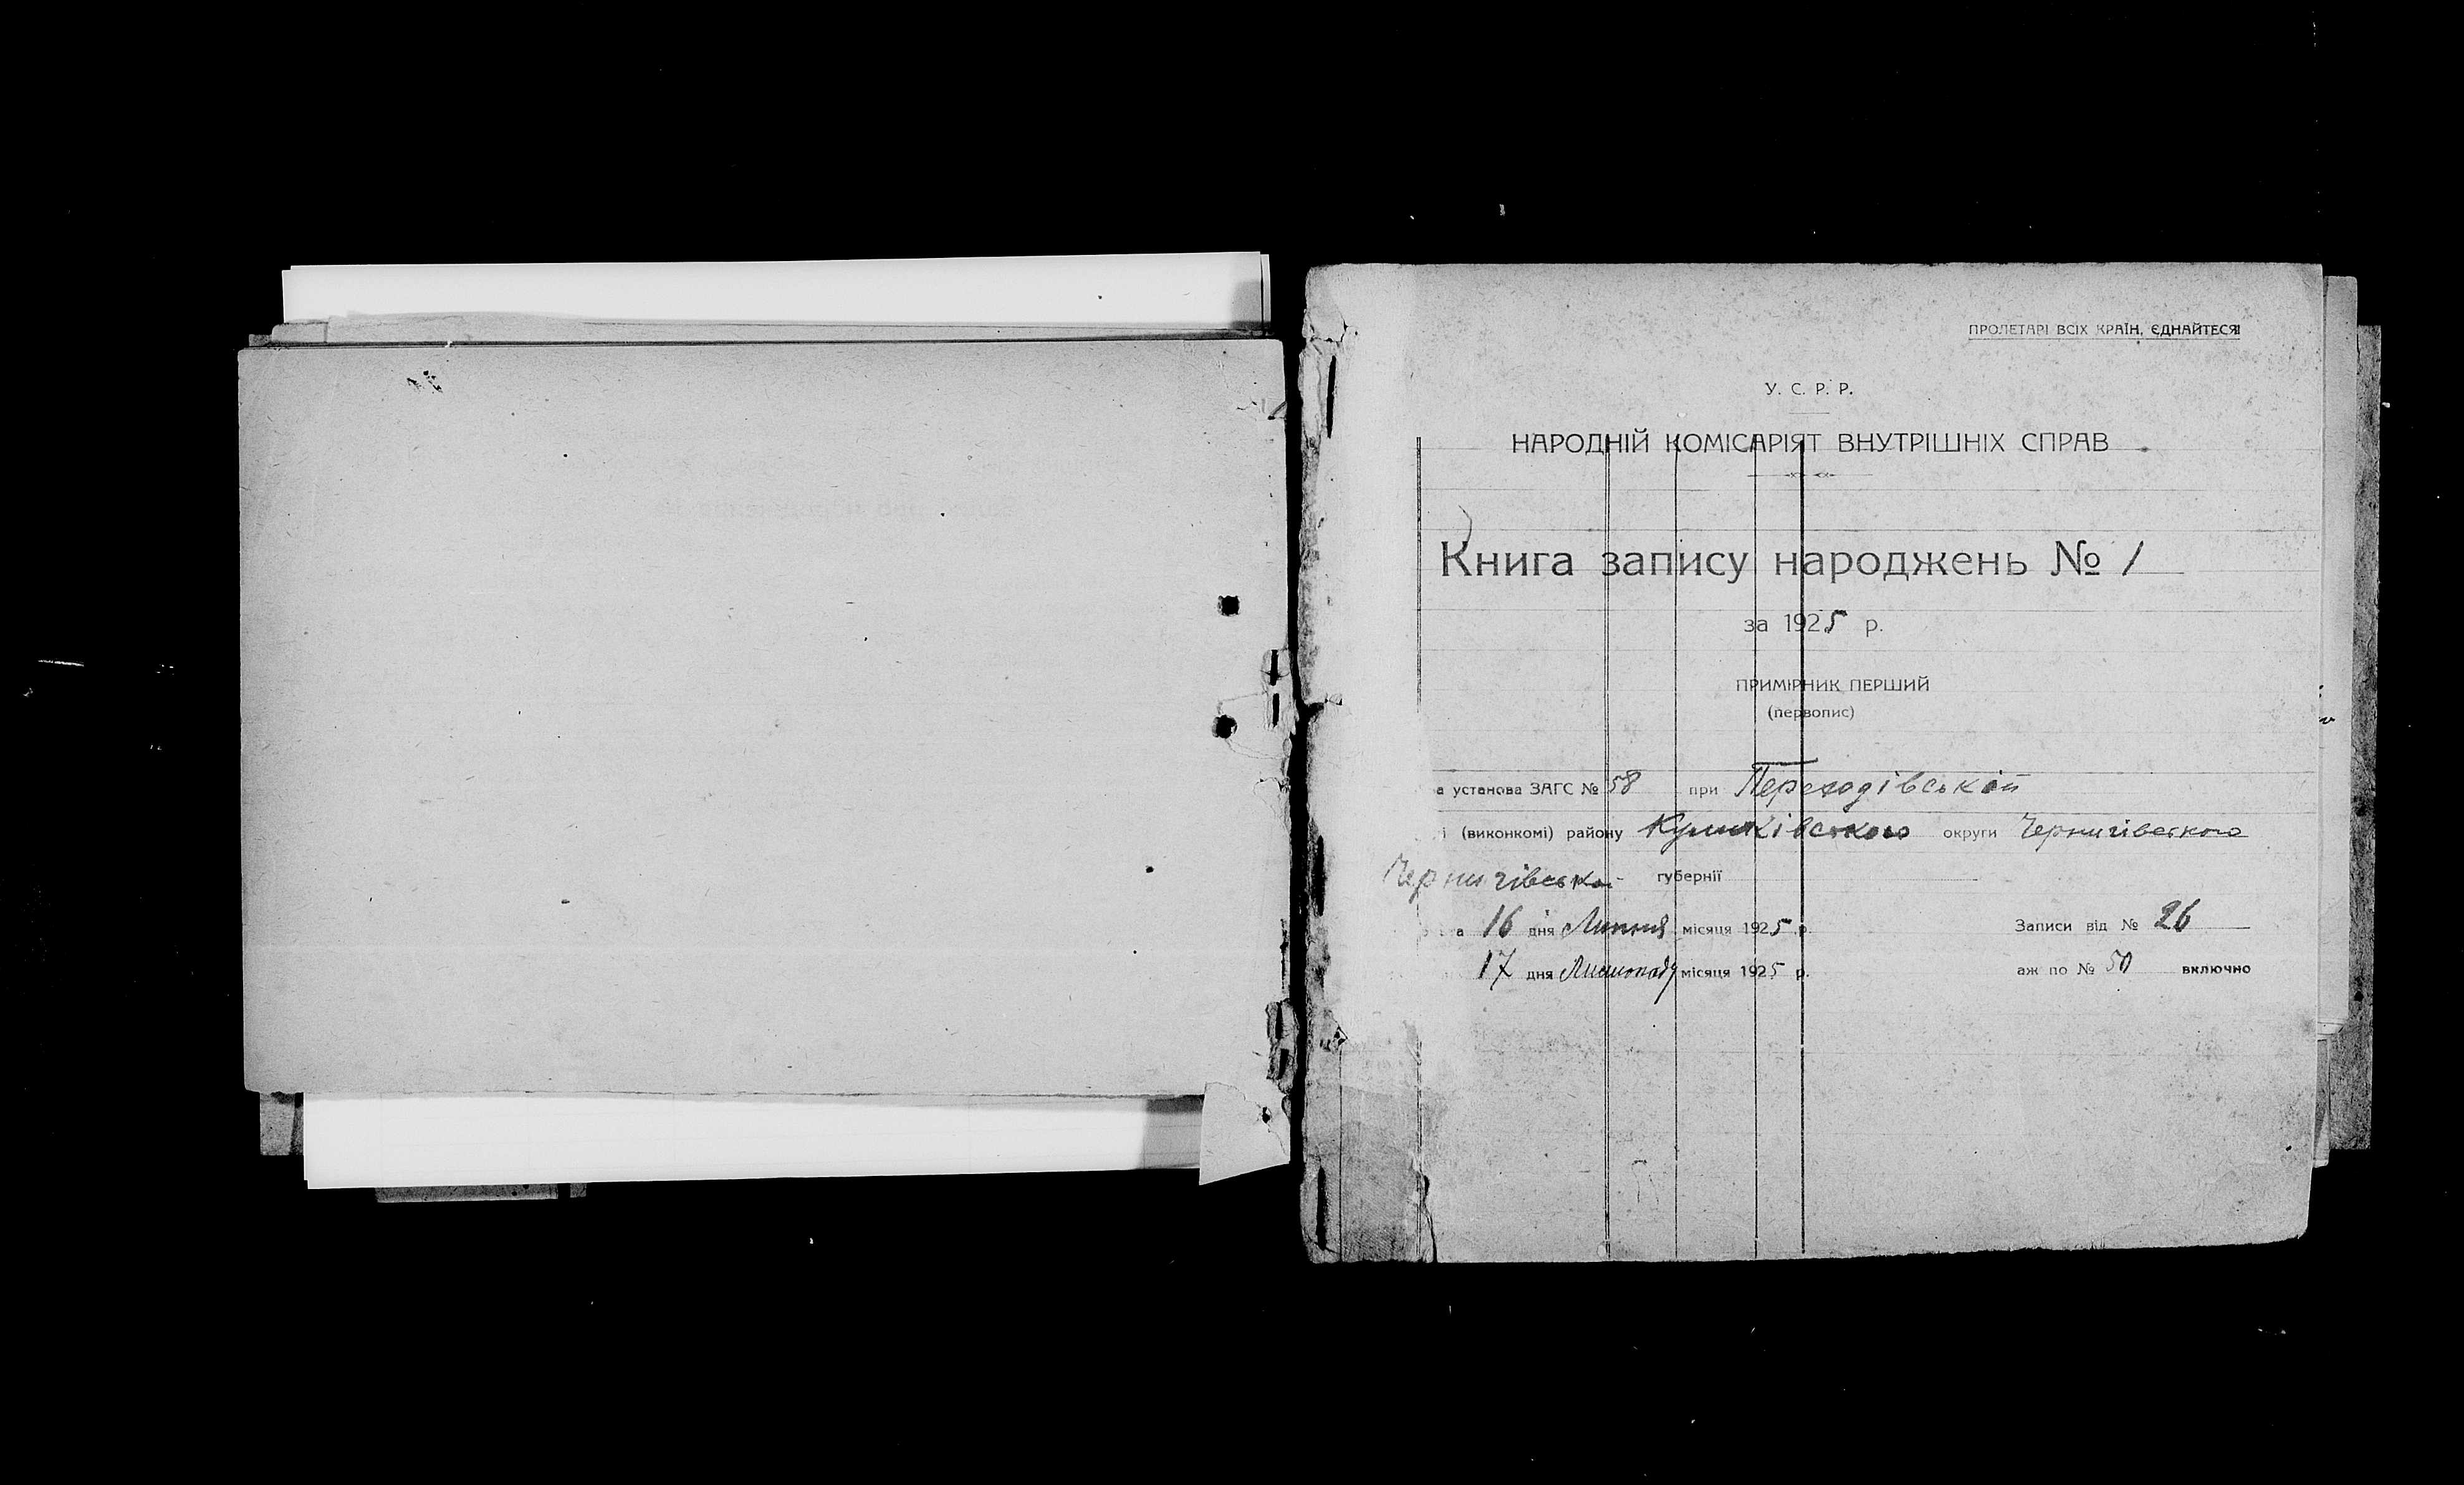 ПРОЛЕТАРІ ВСІХ КРАЇН, ЄДНАЙТЕСЯ!
У. С. Р. Р.
НАРОДНІЙ КОМІСАРІЯТ ВНУТРІШНІХ СПРАВ
Книга запису народжень № 1
за 1925 р.
ПРИМІРНИК ПЕРШИЙ
(первопис)
а установа ЗАГС № 58 при Переходівській
і (виконкомі) району Куликівського округи Чернигівського
Чернигівської губернії
а 16 дня Липня місяця 1925 р. Записи від № 26
17 дня Листопаду місяця 1925 р. аж по № 50 включно